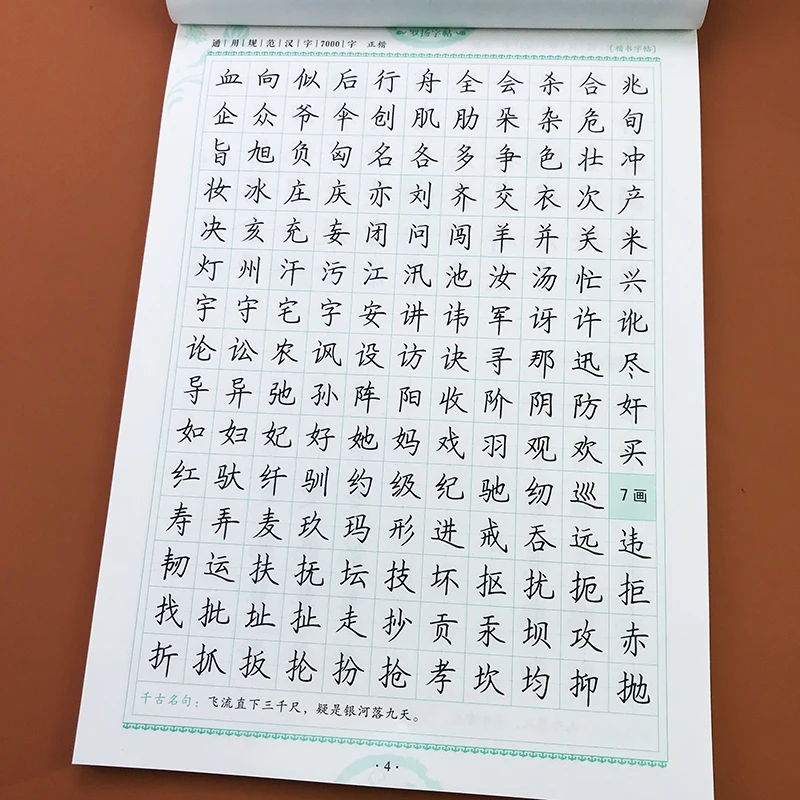 双扬字帖
通用规范汉字7000字 正楷
〔楷书字帖〕
血向似后行舟全会杀合兆
企众爷伞创肌肋朵杂危旬
旨旭负匈名各多争色壮冲
妆冰庄庆亦刘齐交衣次产
决亥充妄闭问闯羊并关米
灯州汗污江汛池汝汤忙兴
宇守宅字安讲讳军讶许讹
论讼农讽设访诀寻那迅尽
导异弛孙阵阳收阶阴防奸
如妇妃好她妈戏羽观欢买
红驮纤驯约级纪驰纫巡7画
寿弄麦玖玛形进戒吞远违
韧运扶抚坛技坏抠扰扼拒
找批址扯走抄贡汞坝攻赤
折抓扳抡扮抢孝坎均抑抛
千古名句：飞流直下三千尺，疑是银河落九天。
·4·